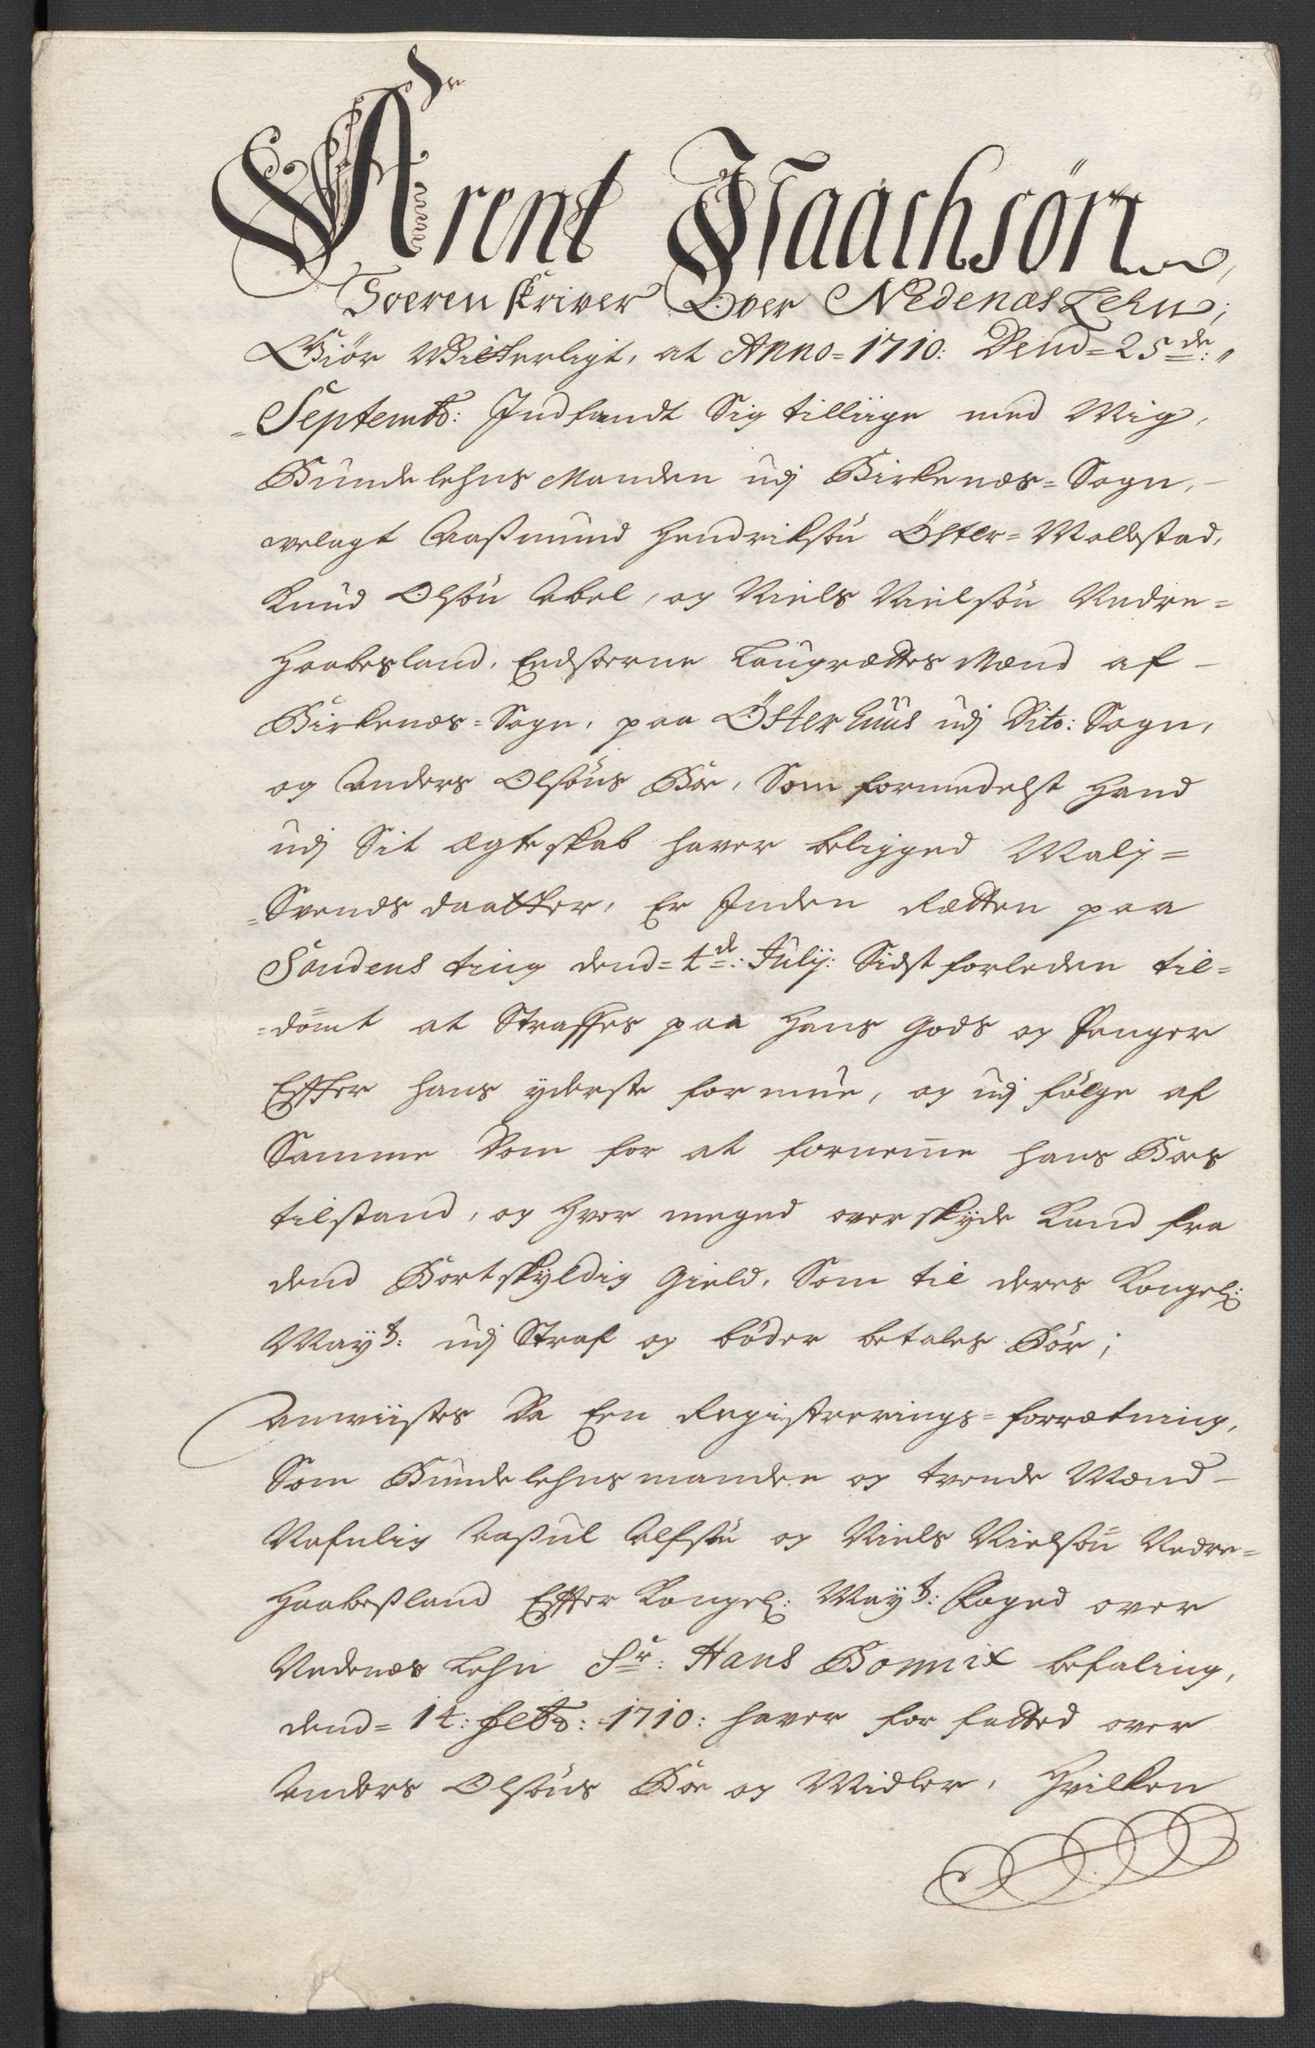 Arent Isaachsön,
Soerenskriver Over Nedenæs Lehn;
Giör Witterligt, at Anno=1710: Dend=25de:
=Septembr: Indfandt Sig tilliige med Mig,
Bundelehns Manden udj Birkenæs=Sogn,
velagt Aaßmund Hendriksön Öster=Mollestad,
Knud Olsön Abel, og Niels Nielsön Nedre=
Haabesland, Eedsoerne Laugrættes Mænd af
Birkenæs=Sogn, paa Österhuus udj Dito: Sogn,
og Anders Olsöns Boe, Som formedelst Hand
udj Sit Ægteskab haver beligged Malj=
=Svends daatter, Er Inden Rætten paa
Sandens ting dend=4de: Julij: Sidstforleden til=
=dömt at Straffes paa Hans Gods og Penger
Effter hans yderste formue, og udj fölge af
Samme Dom for at fornemme hans Boes
tilstand, og Hvor meged overskyde Kand fra
dend Bortskyldig Gield, Som til deres Kongel:
Mayt: udj Straf og böder betales Bör;
Anviistes Da Een Registrerings=forrætning,
Som Bundelehnsmanden og tvende Mænd
Nafnlig Aaßul Alfsön og Niels Nielsön Nedre=
Haabeßland Effter Kongel: Mayt: Foged over
Nedenæs Lehn Sr: Hans Bomix befaling,
dend=14: Febr: 1710: haver forfatted over
Anders Olsöns Boe og Midler, Hvilken